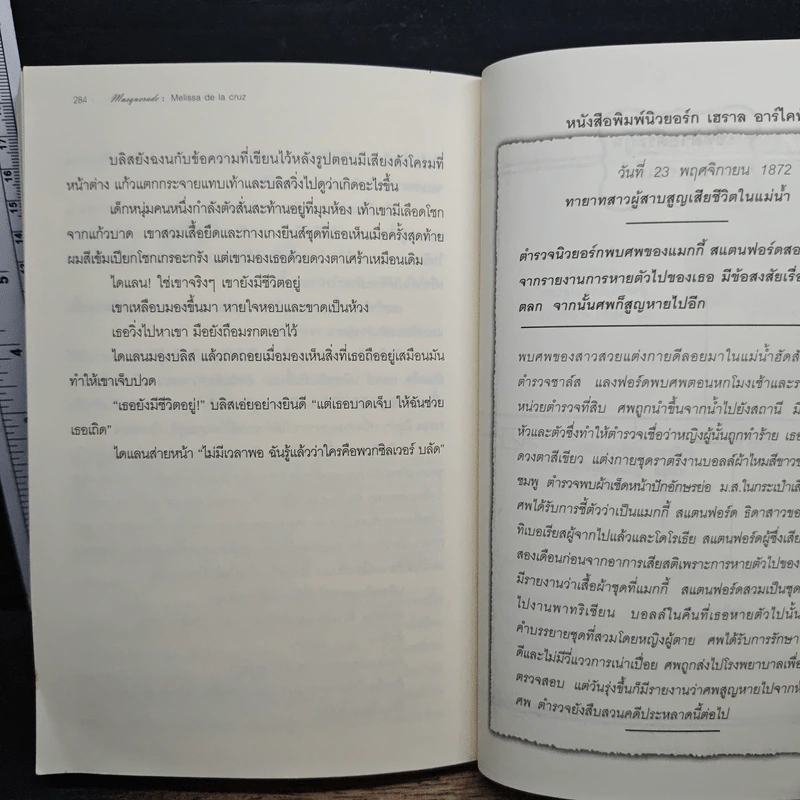 284 Masquerade : Melissa de la cruz
บลิสยังฉงนกับข้อความที่เขียนไว้หลังรูปตอนมีเสียงดังโครมที่
หน้าต่าง แก้วแตกกระจายแทบเท้าและบลิสวิ่งไปดูว่าเกิดอะไรขึ้น
เด็กหนุ่มคนหนึ่งกำลังตัวสั่นสะท้านอยู่ที่มุมห้อง เท้าเขามีเลือดโชก
จากแก้วบาด เขาสวมเสื้อยืดและกางเกงยีนส์ชุดที่เธอเห็นเมื่อครั้งสุดท้าย
ผมสีเข้มเปียกโชกเกรอะกรัง แต่เขามองเธอด้วยดวงตาเศร้าเหมือนเดิม
ไดแลน! ใช่เขาจริงๆ เขายังมีชีวิตอยู่
เขาเหลือบมองขึ้นมา หายใจหอบและขาดเป็นห้วง
เธอวิ่งไปหาเขา มือยังถือมรกตเอาไว้
ไดแลนมองบลิส แล้วถดถอยเมื่อมองเห็นสิ่งที่เธอถืออยู่เสมือนมัน
ทำให้เขาเจ็บปวด
“เธอยังมีชีวิตอยู่!” บลิสเอ่ยอย่างยินดี “แต่เธอบาดเจ็บ ให้ฉันช่วย
เธอเถิด”
ไดแลนส่ายหน้า “ไม่มีเวลาพอ ฉันรู้แล้วว่าใครคือพวกซิลเวอร์ บลัด”
หนังสือพิมพ์นิวยอร์ก เฮราล อาร์ไคฟ
วันที่ 23 พฤศจิกายน 1872
ทายาทสาวผู้สาบสูญเสียชีวิตในแม่น้ำ
ตำรวจนิวยอร์กพบศพของแมกกี้ สแตนฟอร์ดสอง
จากรายงานการหายตัวไปของเธอ มีข้อสงสัยเรื่อ
ตลก จากนั้นศพก็สูญหายไปอีก
พบศพของสาวสวยแต่งกายดีลอยมาในแม่น้ำฮัดสั
ตำรวจชาล์ส แลงฟอร์ดพบศพตอนหกโมงเช้าและร
หน่วยตำรวจที่สิบ ศพถูกนำขึ้นจากน้ำไปยังสถานี มี
หัวและตัวซึ่งทำให้ตำรวจเชื่อว่าหญิงผู้นั้นถูกทำร้าย เธอ
ดวงตาสีเขียว แต่งกายชุดราตรีงานบอลล์ผ้าไหมสีขาวข
ชมพู ตำรวจพบผ้าเช็ดหน้าปักอักษรย่อ ม.ส.ในกระเป๋าเสื
ศพได้รับการชี้ตัวว่าเป็นแมกกี้ สแตนฟอร์ด ธิดาสาวขอ
ทิเบอเรียสผู้จากไปแล้วและโดโรเธีย สแตนฟอร์ดผู้ซึ่งเสีย
สองเดือนก่อนจากอาการเสียสติเพราะการหายตัวไปของ
มีรายงานว่าเสื้อผ้าชุดที่แมกกี้ สแตนฟอร์ดสวมเป็นชุด
ไปงานพาทริเชียน บอลล์ในคืนที่เธอหายตัวไปนั้น
คำบรรยายชุดที่สวมโดยหญิงผู้ตาย ศพได้รับการรักษา
ดีและไม่มีวี่แววการเน่าเปื่อย ศพถูกส่งไปโรงพยาบาลเพื่อ
ตรวจสอบ แต่วันรุ่งขึ้นก็มีรายงานว่าศพสูญหายไปจากห้
ศพ ตำรวจยังสืบสวนคดีประหลาดนี้ต่อไป